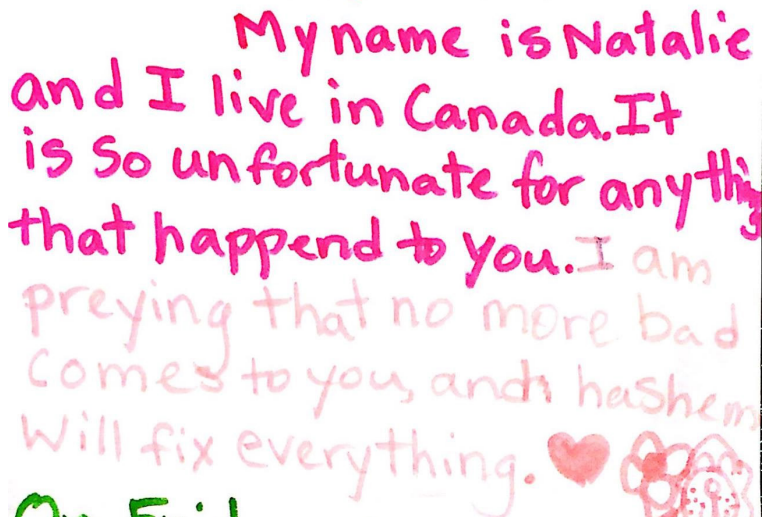 My name is Natalie
and I live in Canada. It
is so unfortunate for anything
that happend to you. I am
preying that no more bad
comes to you, and hashem
will fix everything.
On